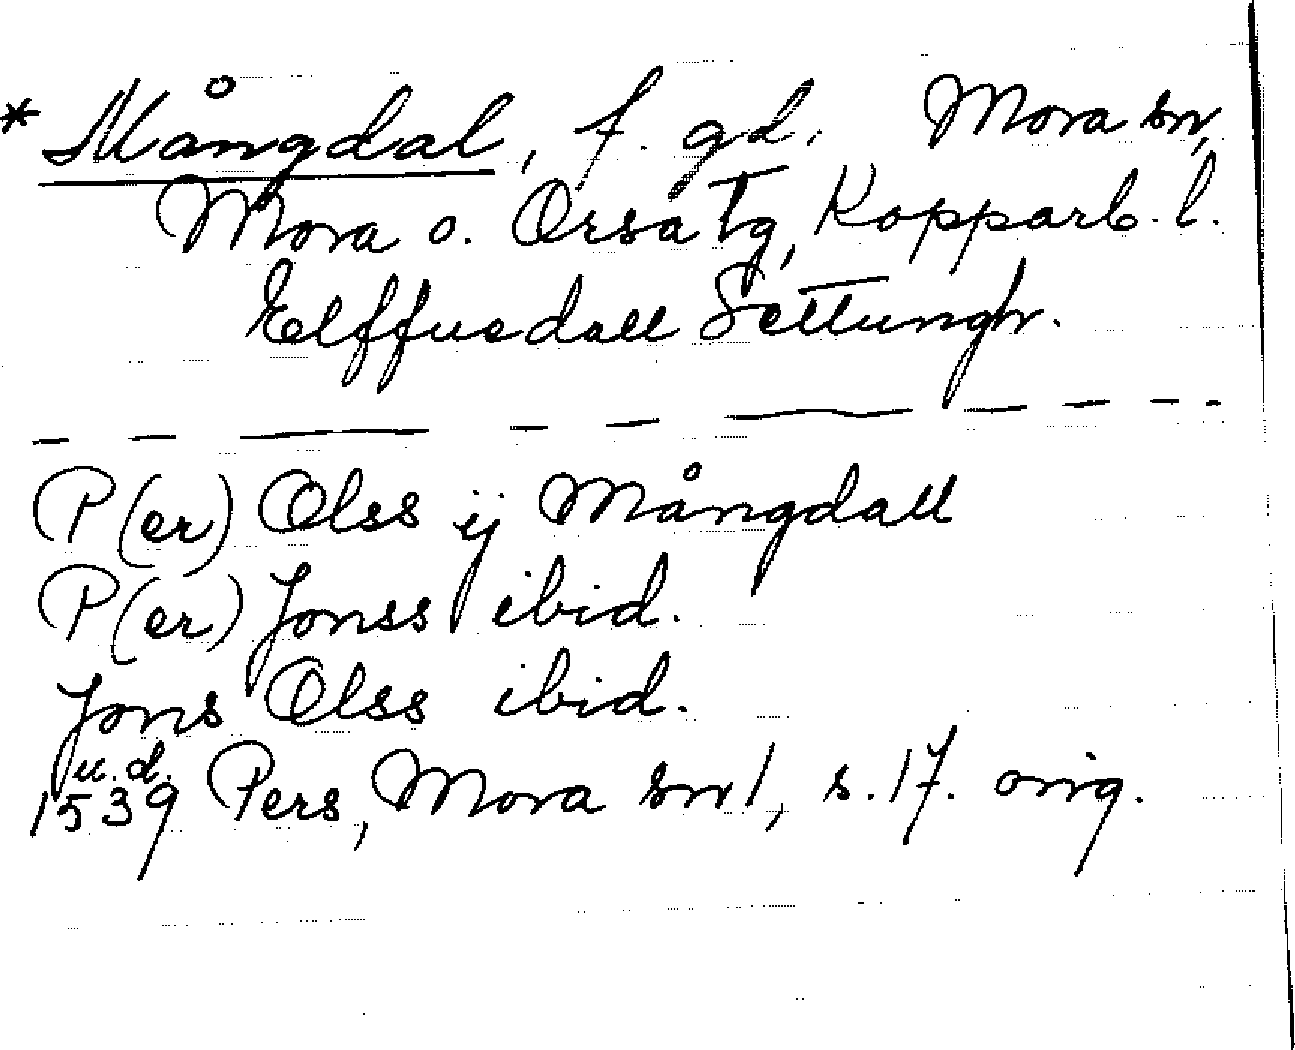 * Mångdal, f. gd. Mora sn,
Mora o. Orsa tg, Kopparb. l.
Elffuedall Settungh.
P(er) Olss ij Mångdall
P(er) Jonss ibid.
Jons Olss ibid.
u.d.
1539 Pers, Mora sn 1, s. 17. orig.